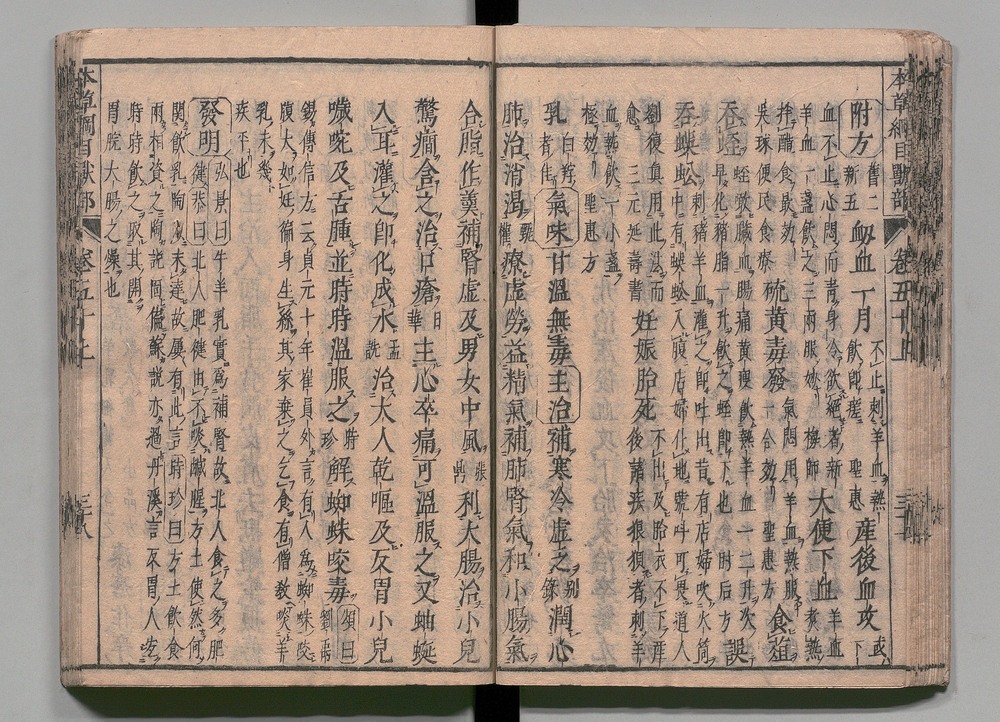 本草綱目獸部 卷五十上
附方 舊二新五 衂血一月 不止刺羊血熱飲即瘥 聖惠 產後血攻 或下
血不止心悶而青身冷欲絕者新羊血一盞飲之三兩服妙 梅師 大便下血 羊血煮熟
拌醋食最效 吳球便民食療 硫黃毒發 氣悶用羊血熱服一合效 聖惠方 食菹
吞蛭 蛭啖臟血腸痛黃瘦飲熱羊血一二升次早化豬脂一升飲之蛭即下也 肘后方 誤
吞蜈蚣 刺豬羊血灌之即吐出昔有店婦吹火筒中有小蜈蚣入腹店婦仆地號叫可畏道人
劉復真用此法而愈 三元延壽書 妊娠胎死 不出及胎衣不下產後諸疾狼狽者刺羊
血熱飲一小盞極效 聖惠方
乳 白羜者佳 氣味甘溫無毒 主治 補寒冷虛乏 別錄 潤心
肺治消渴 甄權 療虛勞益精氣補肺腎氣和小腸氣
合脂作羹補腎虛及男女中風 張鼎 利大腸治小兒
驚癇含之治口瘡 日華 主心卒痛可溫服之又蚰蜒
入耳灌之即化成水 孟詵 治大人乾嘔及反胃小兒
噦啘及舌腫並時時溫服之 時珍 解蜘蛛咬毒 頌曰劉禹
錫傳信方云貞元十年崔員外言有人為蜘蛛咬
腹大如妊徧身生絲其家棄之乞食有僧教啖羊
乳未幾疾平也
發明 弘景曰牛羊乳實為補腎故北人食之多肥
健 恭曰北人肥健由不啖鹹腥方土使然何
關飲乳陶以未達故屢有此言 時珍曰方土飲食
兩相資之陶說固偏蘇說亦過丹溪言反胃人宜
時時飲之取其開
胃脘大腸之燥也
本草綱目獸部 卷五十上 三十八